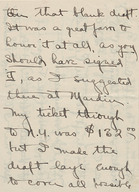 on that blank draft
It was a great favor to
honor it at all, as you
should have signed
I, as I suggested
then at Mardin
My ticket through
to N.Y. was $182.00
but I made the
draft large enough
to cover all possi